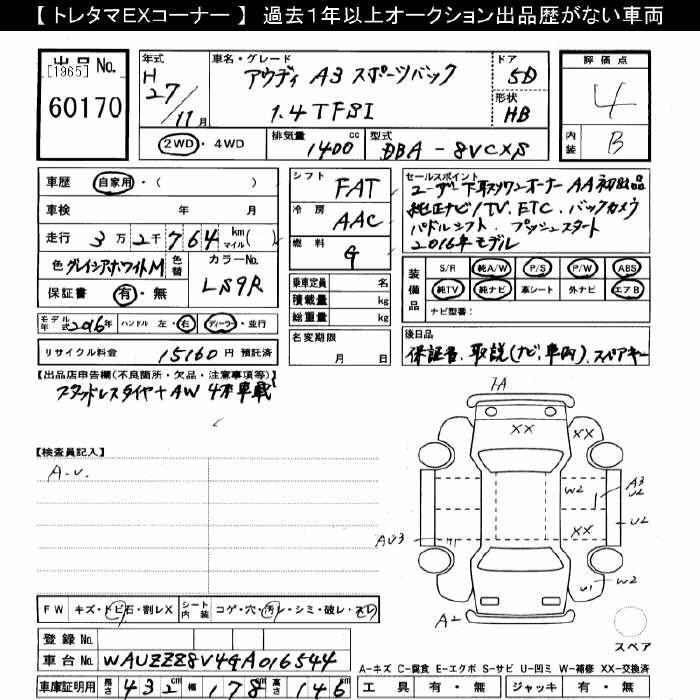 【 トレタマEXコーナー 】 過去1年以上オークション出品歴がない車両
出品 No.
[1965]
60170
年式
H
27/
11月
車名・グレード
アウディ A3 スポーツバック
1.4TFSI
ドア
5D
形状
HB
評価点
4
内装
B
2WD・4WD
排気量
1400 cc
型式
DBA-8VCXS
車歴 自家用・( )
車検 年 月
走行 3万2千764 km マイル( )
色 グレイシアホワイトM 色替 カラーNo. LS9R
保証書 有・無
モデル年式 2016年 ハンドル 左・右 ディーラー・並行
リサイクル料金 15160円 預託済
シフト FAT
冷房 AAC
燃料 G
乗車定員 名
積載量 kg
総重量 kg
名変期限
月 日
セールスポイント
ユーザー下取りワンオーナーAA初出品
純正ナビ/TV. ETC. バックカメラ
パドルシフト. プッシュスタート
2016年モデル
装備品
S/R 純A/W P/S P/W ABS
純TV 純ナビ 革シート 外ナビ エアB
ナビ型番:
後日品
保証書、取説(ナビ、車両)、スペアキー
【出品店申告欄(不良箇所・欠品・注意事項等)】
スタッドレスタイヤ+AW 4本車載
【検査員記入】
A.U.
1A
XX
XX
W2
A3
U2
U2
XX
AU3
W2
U1
A2
スペア
FW キズ・トビ石・割レX シート内装 コゲ・穴・汚レ・シミ・破レ・スレ
登録 No.
車台 No. WAUZZZ8V4GA016544
車庫証明用 長さ 432cm 幅 178cm 高さ 146cm
A-キズ C-腐食 E-エクボ S-サビ U-凹ミ W-補修 XX-交換済
工具 有・無 ジャッキ 有・無